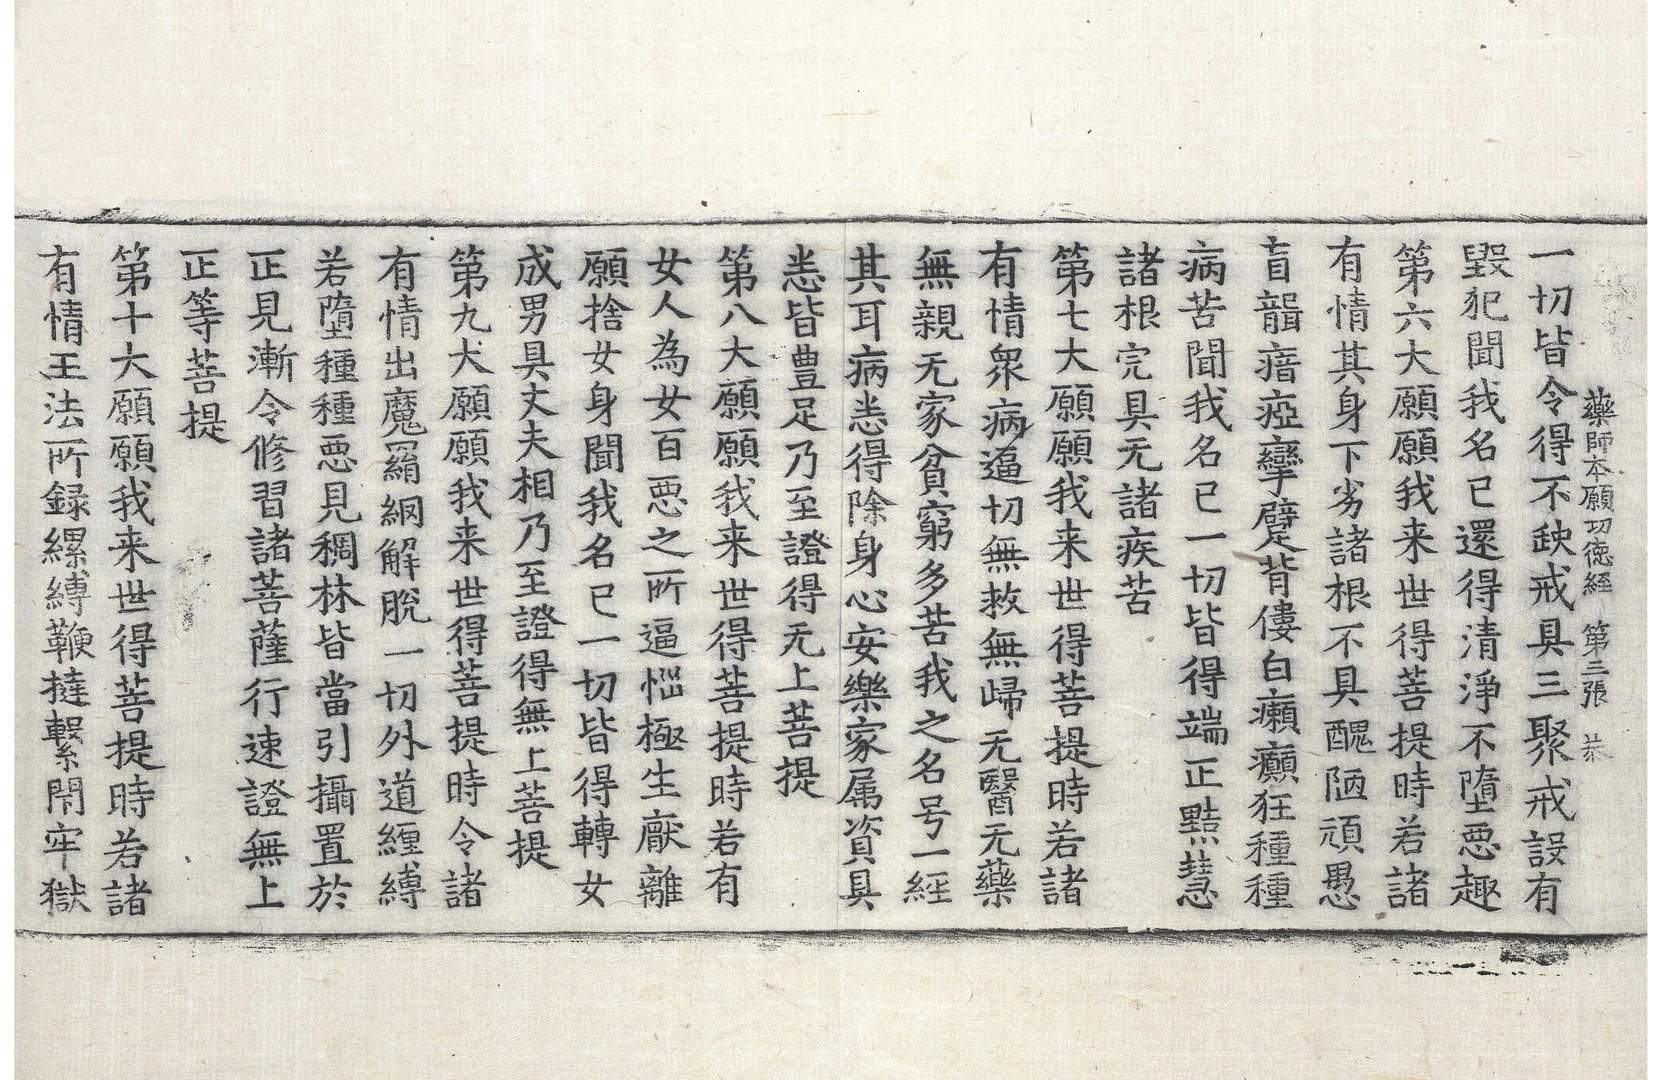 藥師本願功徳経 第三張 恭
一切皆令得不缺戒具三聚戒設有
毀犯聞我名已還得清淨不墮惡趣
第六大願願我来世得菩提時若諸
有情其身下劣諸根不具醜陋頑愚
盲聾瘖瘂攣躄背僂白癩癲狂種種
病苦聞我名已一切皆得端正黠慧
諸根完具无諸疾苦
第七大願願我来世得菩提時若諸
有情衆病逼切無救無歸无醫无藥
無親无家貧窮多苦我之名号一經
其耳病悉得除身心安樂家属資具
悉皆豊足乃至證得无上菩提
第八大願願我来世得菩提時若有
女人為女百惡之所逼惱極生厭離
願捨女身聞我名已一切皆得轉女
成男具丈夫相乃至證得無上菩提
第九大願願我来世得菩提時令諸
有情出魔羂網解脫一切外道纏縛
若墮種種惡見稠林皆當引攝置於
正見漸令修習諸菩薩行速證無上
正等菩提
第十大願願我来世得菩提時若諸
有情王法所録縲縛鞭撻繫閇牢獄